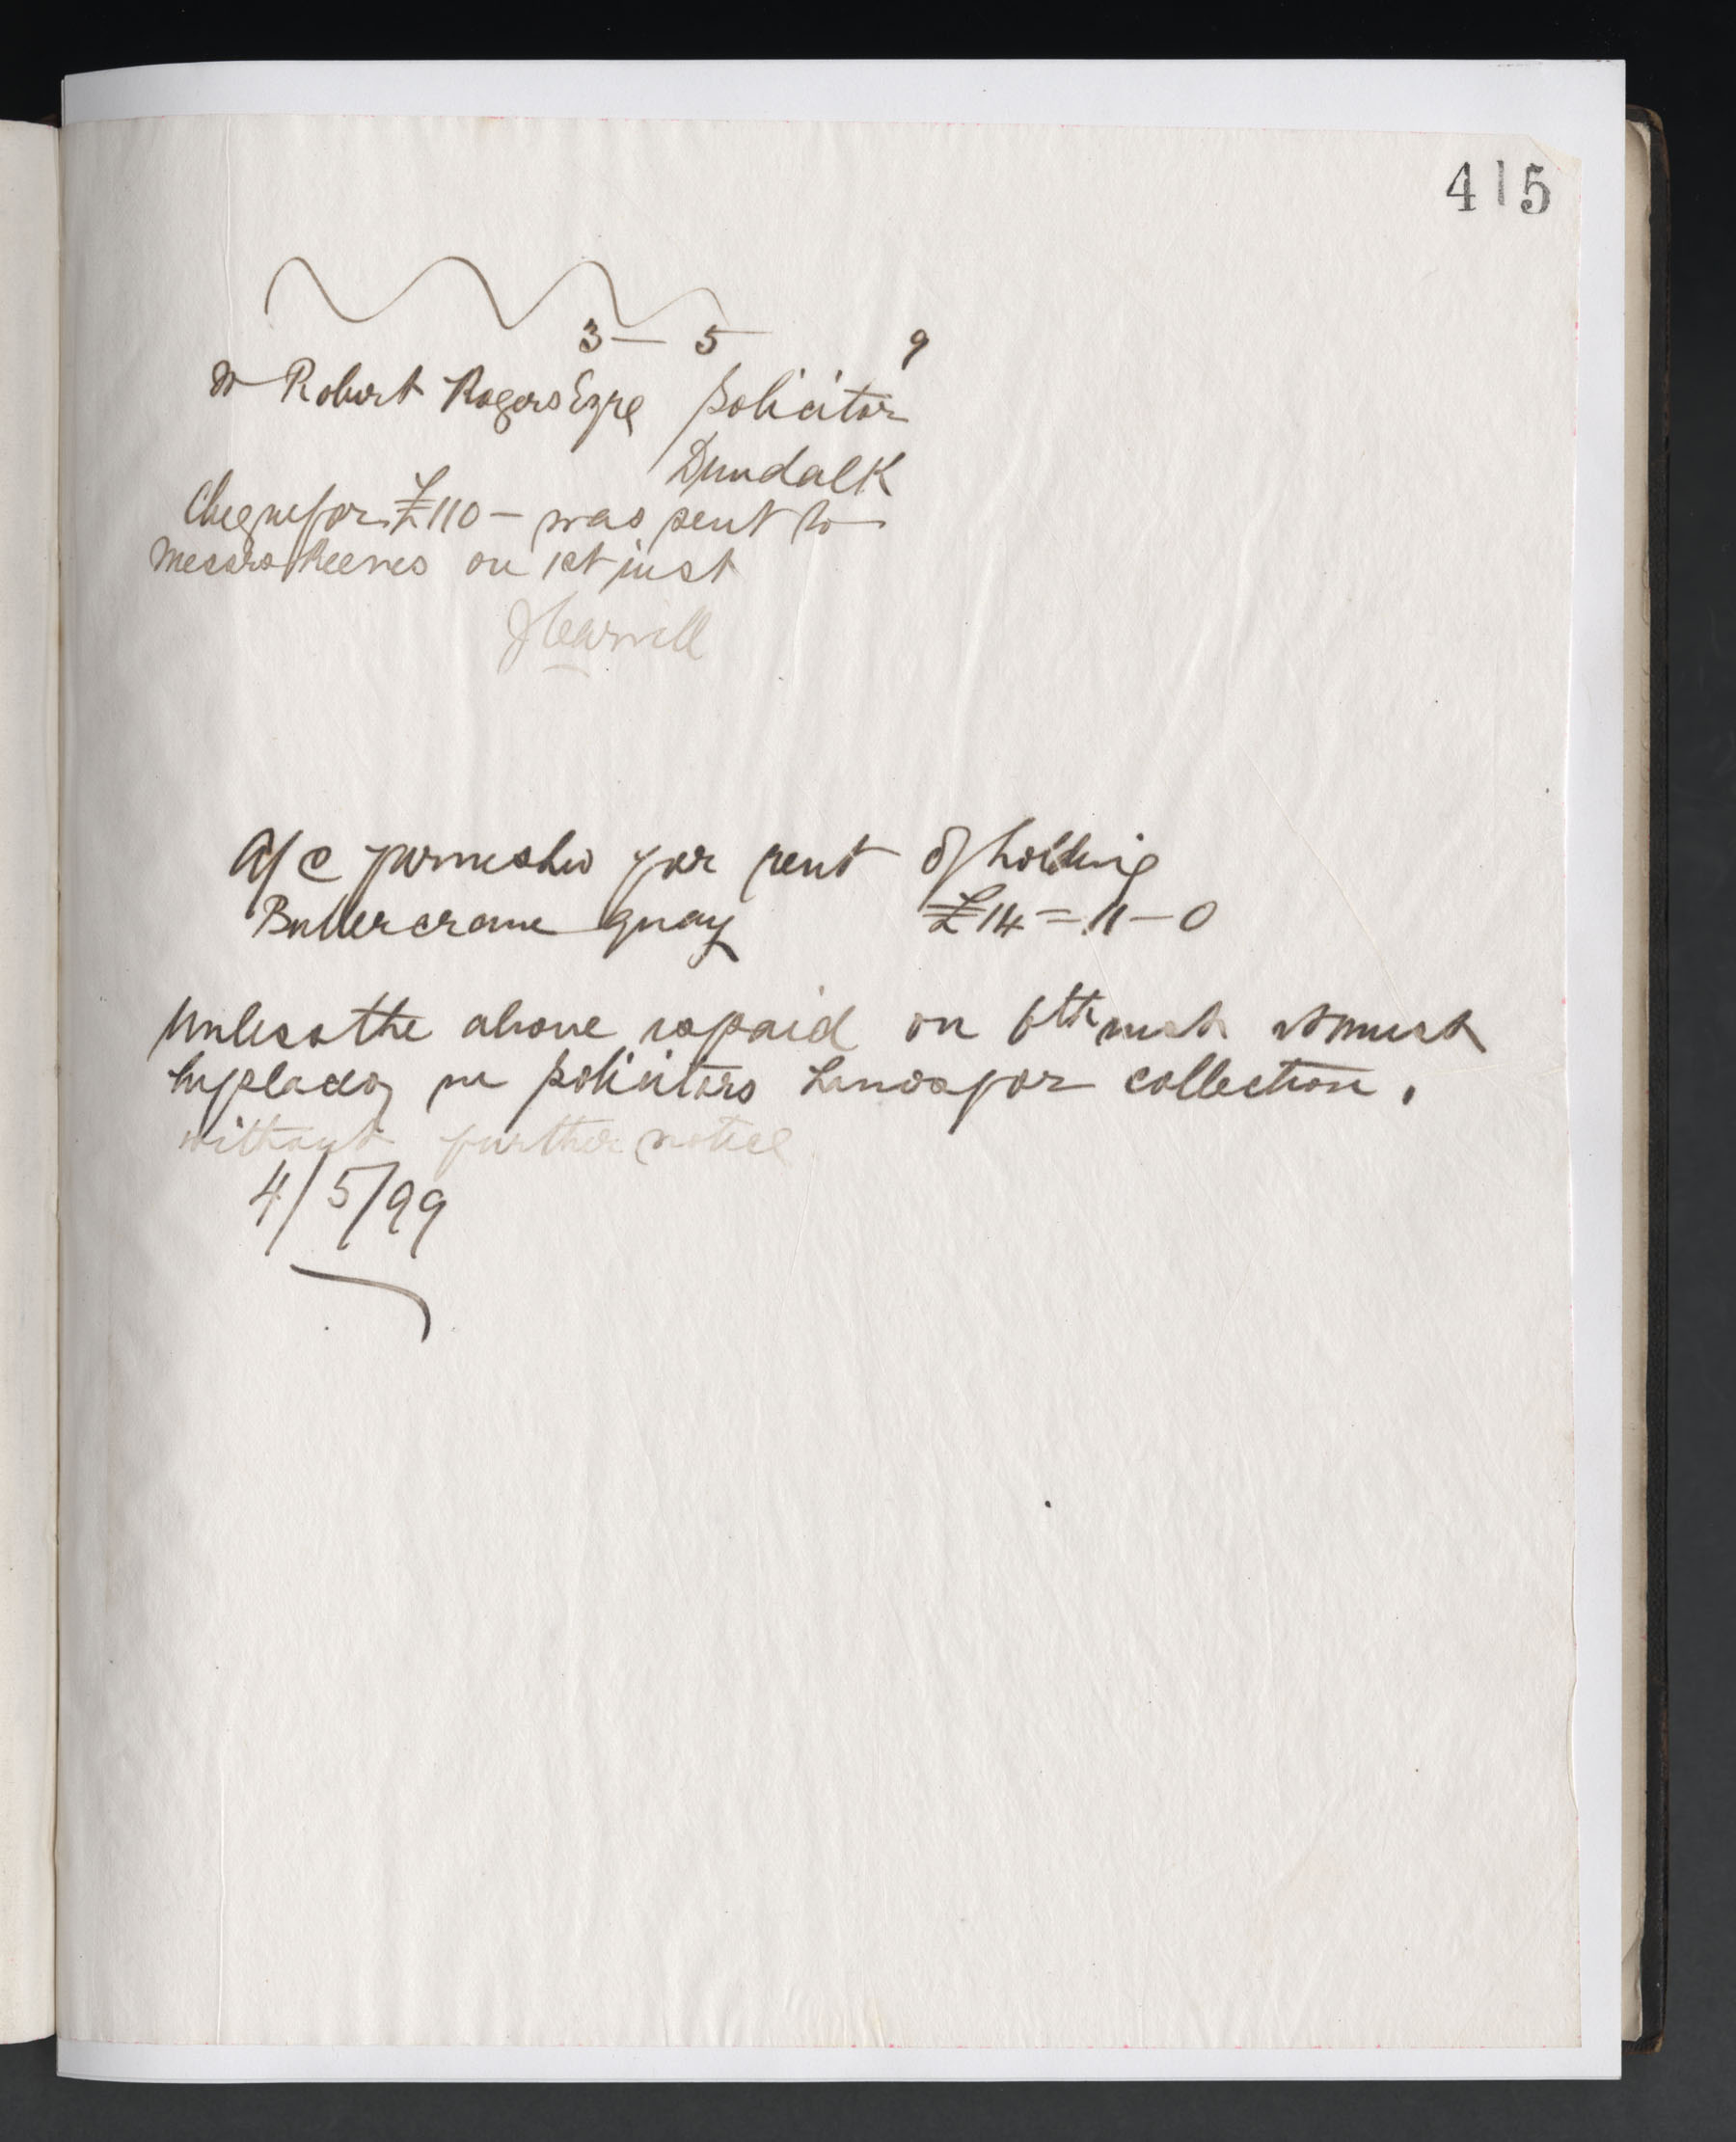 415
3 — 5 9
Mr Robert Rogers Esqre Solicitor
Dundalk
Cheque for £110 – was sent to
Messrs Reeves on 1st inst
JCarvill
A/c furnished for rent of holding
Buttercrane quay £14=11–0
Unless the above is paid on 6th inst it must
be placed in solicitors hands for collection.
without further notice
4/5/99